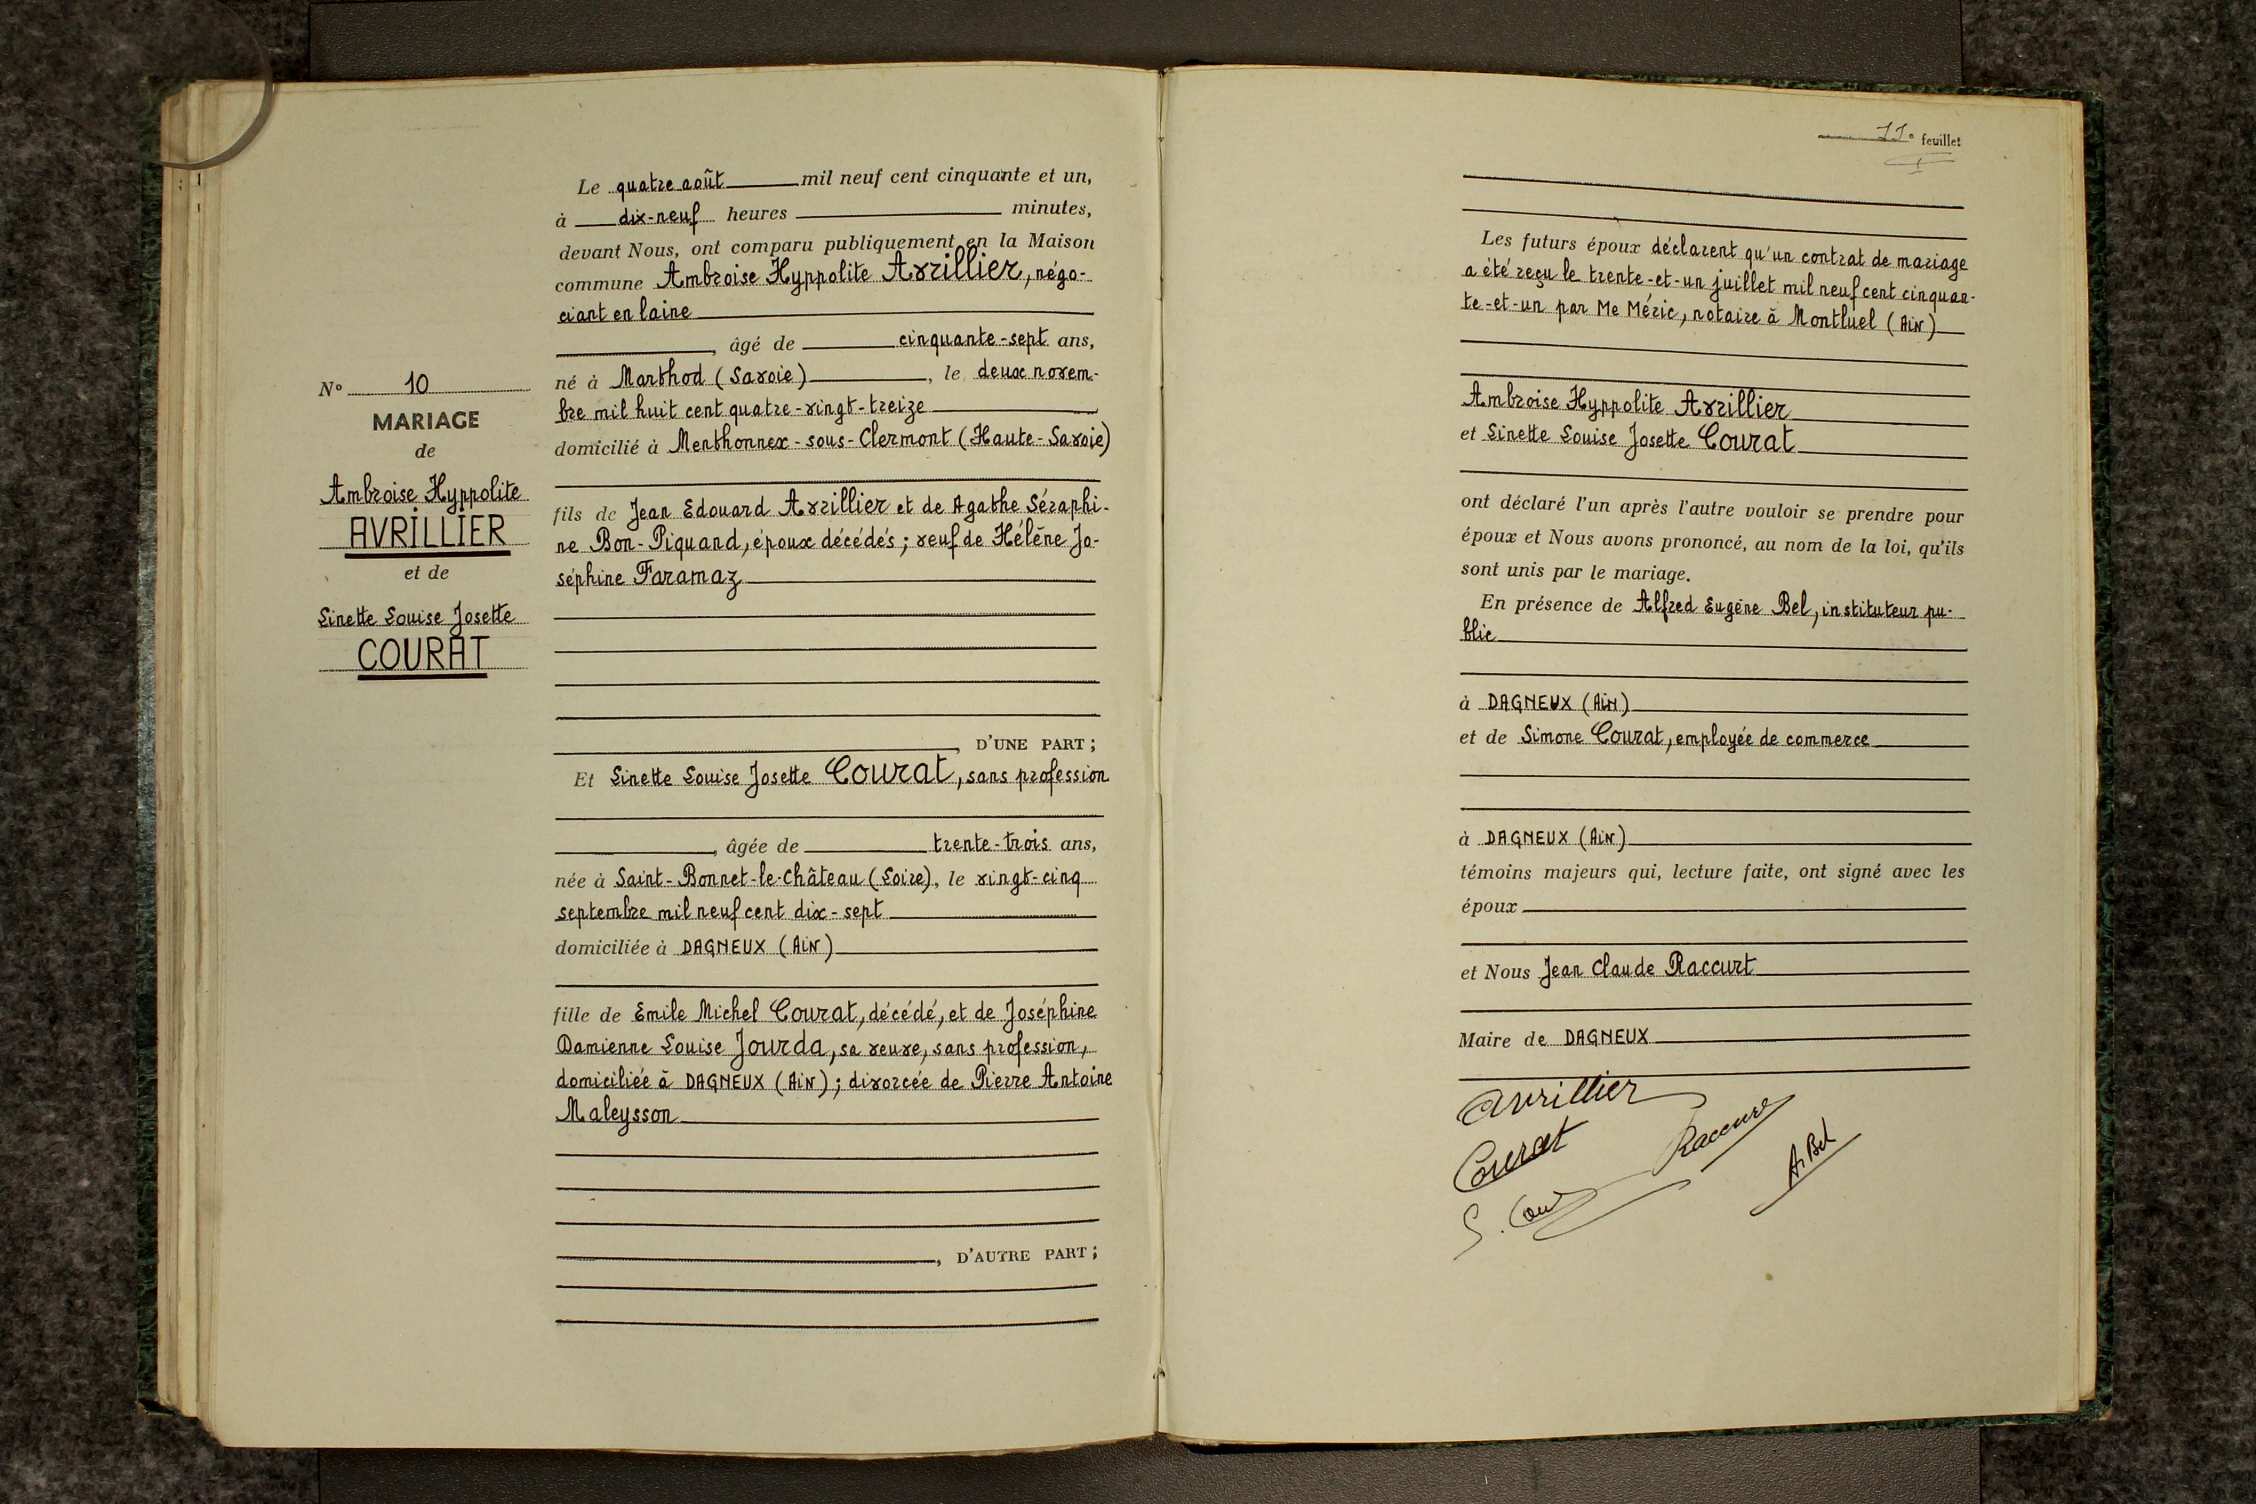 Le quatre août mil neuf cent cinquante et un,
à dix-neuf heures minutes,
devant Nous, ont comparu publiquement en la Maison
commune Ambroise Hyppolite Avrillier, négo-
ciant en laine
, âgé de cinquante-sept ans,
né à Marthod (Savoie), le deux novem-
bre mil huit cent quatre-vingt-treize
domicilié à Menthonnex-sous-Clermont (Haute-Savoie)
fils de Jean Edouard Avrillier et de Agathe Séraphi-
ne Bon-Piquand, époux décédés; veuf de Hélène Jo-
séphine Faramaz
, D'UNE PART;
Et Linette Louise Josette Courat, sans profession
, âgée de trente-trois ans,
née à Saint-Bonnet-le-Château (Loire), le vingt-cinq
septembre mil neuf cent dix-sept
domiciliée à DAGNEUX (AiN)
fille de Emile Michel Courat, décédé, et de Joséphine
Damienne Louise Jourda, sa veuve, sans profession,
domiciliée à DAGNEUX (AiN); divorcée de Pierre Antoine
Maleysson
, D'AUTRE PART;
N° 10
MARIAGE
de
Ambroise Hyppolite
AVRILLIER
et de
Linette Louise Josette
COURAT
11e feuillet
Les futurs époux déclarent qu'un contrat de mariage
a été reçu le trente-et-un juillet mil neuf cent cinquan-
te-et-un par Me Méric, notaire à Montluel (AiN)
Ambroise Hyppolite Avrillier
et Linette Louise Josette Courat
ont déclaré l'un après l'autre vouloir se prendre pour
époux et Nous avons prononcé, au nom de la loi, qu'ils
sont unis par le mariage.
En présence de Alfred Eugène Bel, instituteur pu-
blic
à DAGNEUX (AiN)
et de Simone Courat, employée de commerce
à DAGNEUX (AiN)
témoins majeurs qui, lecture faite, ont signé avec les
époux
et Nous Jean Claude Raccurt
Maire de DAGNEUX
Avrillier
Courat
Raccurt
A. Bel
S. Cou